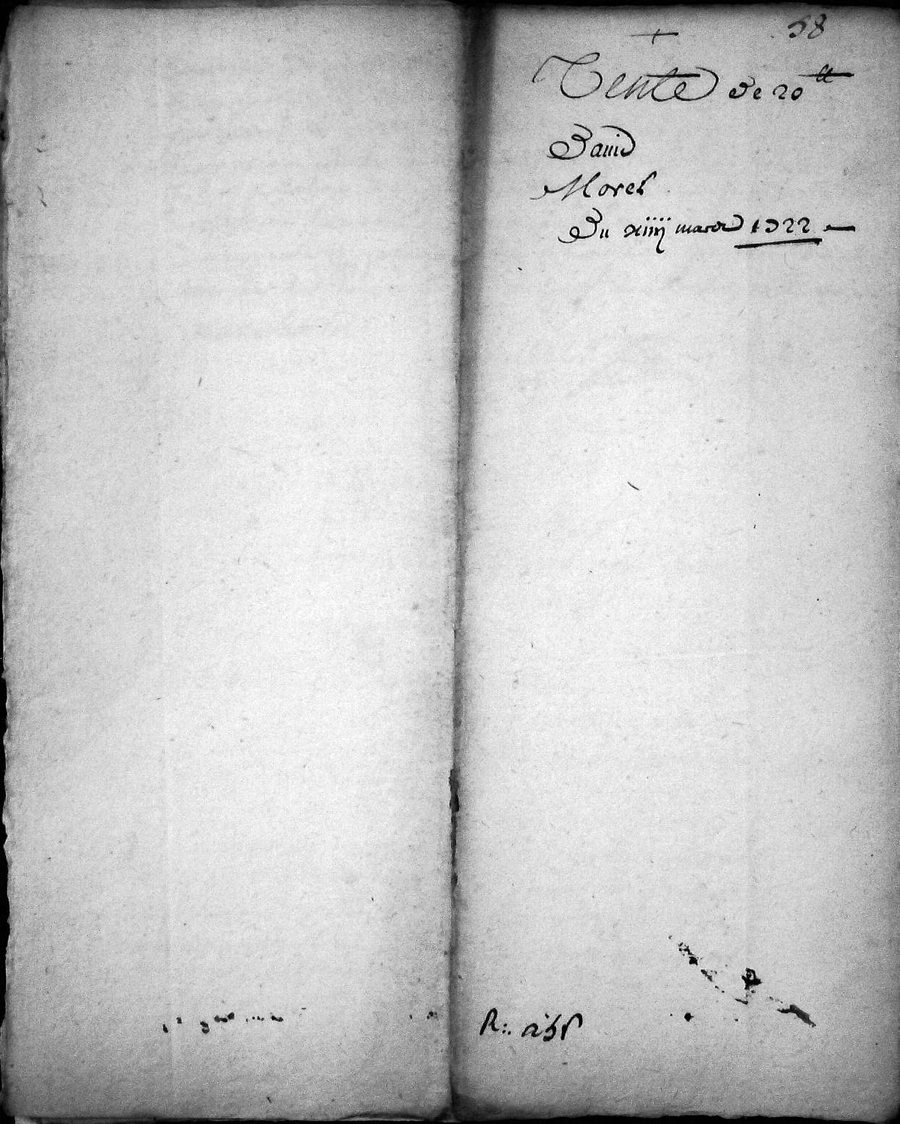 58
Vente de 20 tt
David
Morel
Du xiiij mars 1722
R: